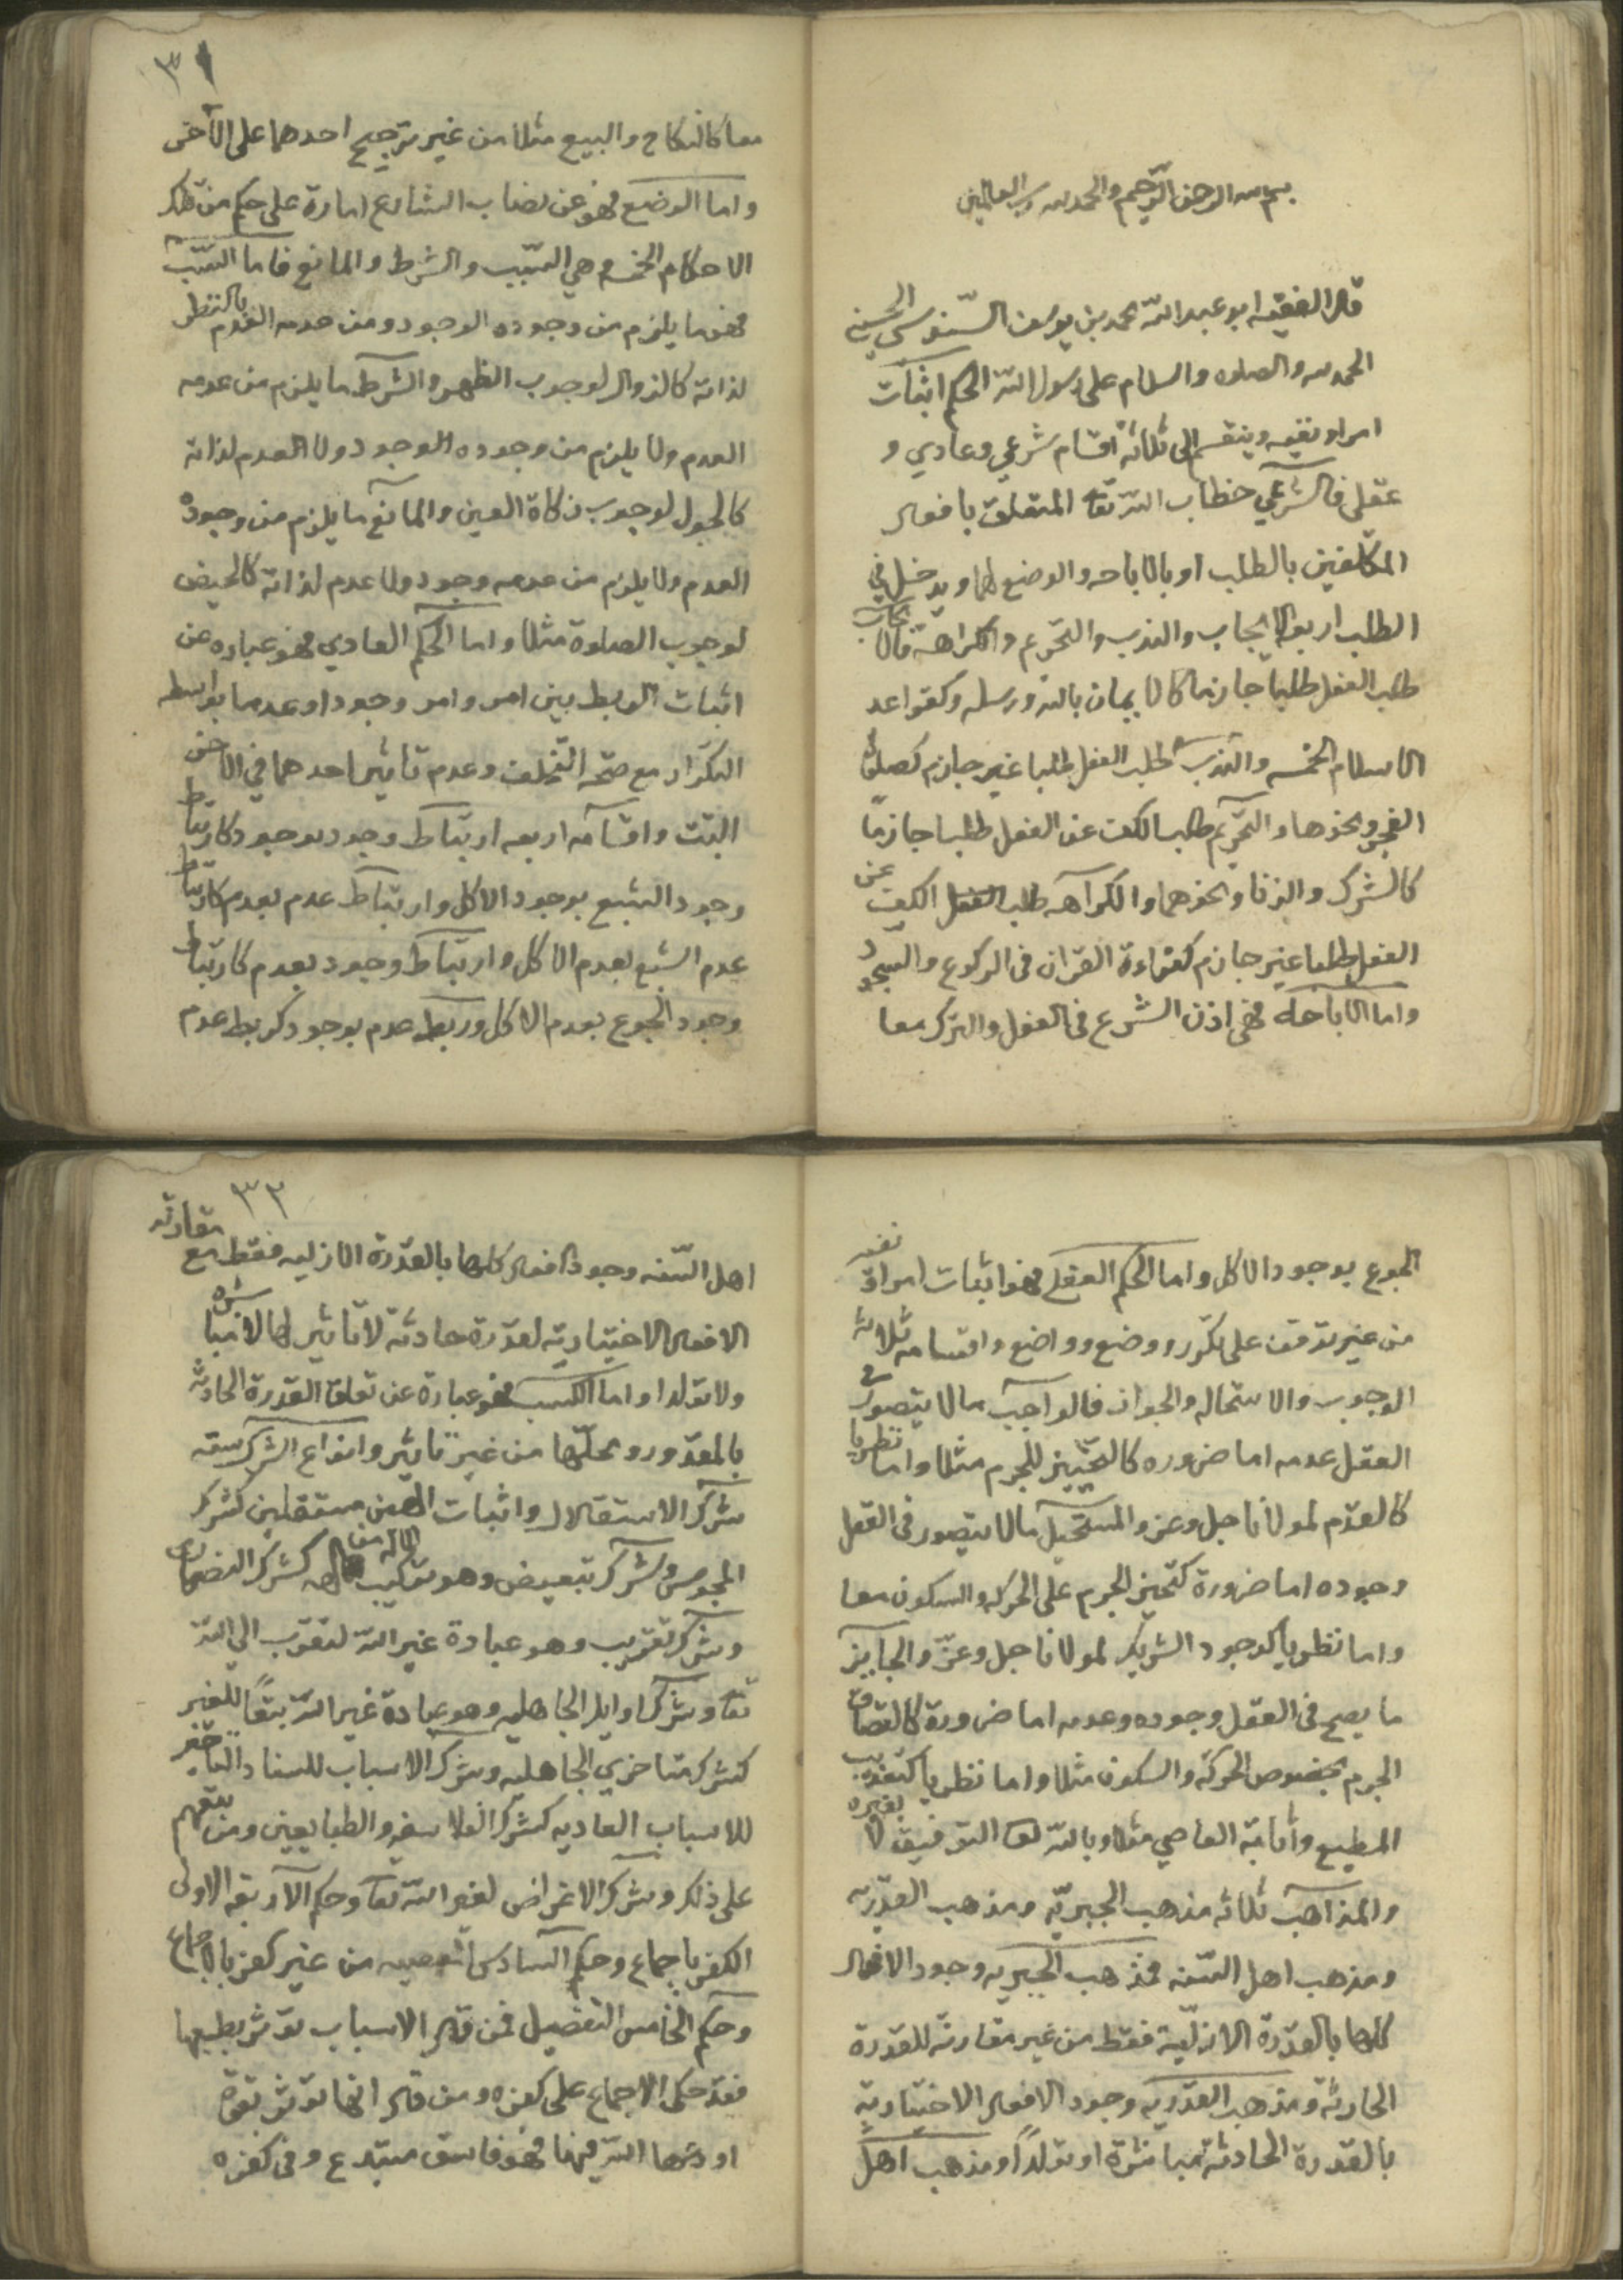 بسم الله الرحمن الرحيم والحمد لله رب العالمين
قال الفقيه ابو عبد الله محمد بن يوسف السنوسي الحسني
الحمد لله والصلوه والسلام على رسول الله الحكم اثبات
امر او نفيه وينقسم الى ثلاثة اقسام شرعي وعادي و
عقلي فالشرعي خطاب الله تعا المتعلق بافعال
المكلفين بالطلب او بالاباحه والوضع لهما ويدخل في
الطلب اربعة الايجاب والندب والتحريم والكراهة فالايجاب
طلب الفعل طلبا جازما كالايمان بالله ورسله وكقواعد
الاسلام الخمسه والندب طلب الفعل طلبا غير جازم كصلوة
الفجر ونحوها والتحريم طلب الكف عن الفعل طلبا جازما
كالشرك والزنا ونحوهما والكراهه طلب الكف عن
الفعل طلبا غير جازم كقراءة القران في الركوع والسجود
واما الاباحة فهي اذن الشرع في الفعل والترك معا
٣١
معا كالنكاح والبيع مثلا من غير ترجيح احدهما على الآخر
واما الوضع فهو عن نصب الشارع امارة على حكم من تلك
الاحكام الخمسه وهي السبب والشرط والمانع فاما السبب
فهو ما يلزم من وجوده الوجود ومن عدمه العدم بالنظر
لذاته كالزوال لوجوب الظهر والشرط ما يلزم من عدمه
العدم ولا يلزم من وجوده الوجود ولا العدم لذاته
كالحول لوجوب زكاة العين والمانع ما يلزم من وجوده
العدم ولا يلزم من عدمه وجود ولا عدم لذاته كالحيض
لوجوب الصلوة مثلا واما الحكم العادي فهو عباره عن
اثبات الربط بين امر وامر وجودا او عدما بواسطه
التكرار مع صحة التخلف وعدم تاثير احدهما في الآخر
البتت واقسامه اربعه ارتباط وجود بوجود كارتباط
وجود الشبع بوجود الاكل وارتباط عدم بعدم كارتباط
عدم الشبع بعدم الاكل وارتباط وجود بعدم كارتباط
وجود الجوع بعدم الاكل وربط عدم بوجود كربط عدم
الجوع بوجود الاكل واما الحكم العقلي فهو اثبات امر او نفيه
من غير توقف على تكرر ووضع وواضع واقسامه ثلاثة
الوجوب والاستحاله والجواز فالواجب ما لا يتصور في
العقل عدمه اما ضروره كالتحيز للجرم مثلا واما نظريا
كالقدم لمولانا جل وعز والمستحيل ما لا يتصور في العقل
وجوده اما ضرورة كتحيز الجرم على الحركه والسكون معا
واما نظريا كوجود الشريك لمولانا جل وعز والجايز
ما يصح في العقل وجوده وعدمه اما ضرورة كاتصاف
الجرم بخصوص الحركة والسكون مثلا واما نظريا كتعذيب
المطيع واثابة العاصي مثلا وبالله تعا التوفيق لا بغيره
والمذاهب ثلاثه مذهب الجبرية ومذهب القدرية
ومذهب اهل السنه فمذهب الجبريه وجود الافعال
كلها بالقدرة الازلية فقط من غير مقارنة للقدرة
الحادثة ومذهب القدريه وجود الافعال الاختيارية
بالقدرة الحادثة مباشرة او تولدا ومذهب اهل
٣٢
اهل السنه وجود الافعال كلها بالقدرة الازليه فقط مع مقارنة
الافعال الاختيارية لقدرة حادثة لا تاثير لها لا مباشره
ولا تولدا واما الكسب فهو عبارة عن تعلق القدرة الحادثة
بالمقدور ومحلها من غير تاثير وانواع الشرك سته
شرك الاستقلال واثبات الهين مستقلين كشرك
المجوس وشرك تبعيض وهو تركيب الاله من الهه كشرك النصارى
وشرك تقريب وهو عبادة غير الله لتقرب الي الله
تعا وشرك اوايل الجاهليه وهو عبادة غير الله تبعا للغير
كشرك متاخري الجاهليه وشرك الاسباب للسناد التاثير
للاسباب العاديه كشرك الفلاسفه والطبايعيين ومن تبعهم
على ذلك وشرك الاغراض لغير الله تعا وحكم الاربعه الاولى
الكفر باجماع وحكم السادس المعصيه من غير كفر بالاجماع
وحكم الخامس التفصيل فمن قال الاسباب تؤثر بطبعها
فقد حكى الاجماع على كفره ومن قال انها تؤثر بقوة
اودعها الله فيها فهو فاسق مبتدع وفي كفره